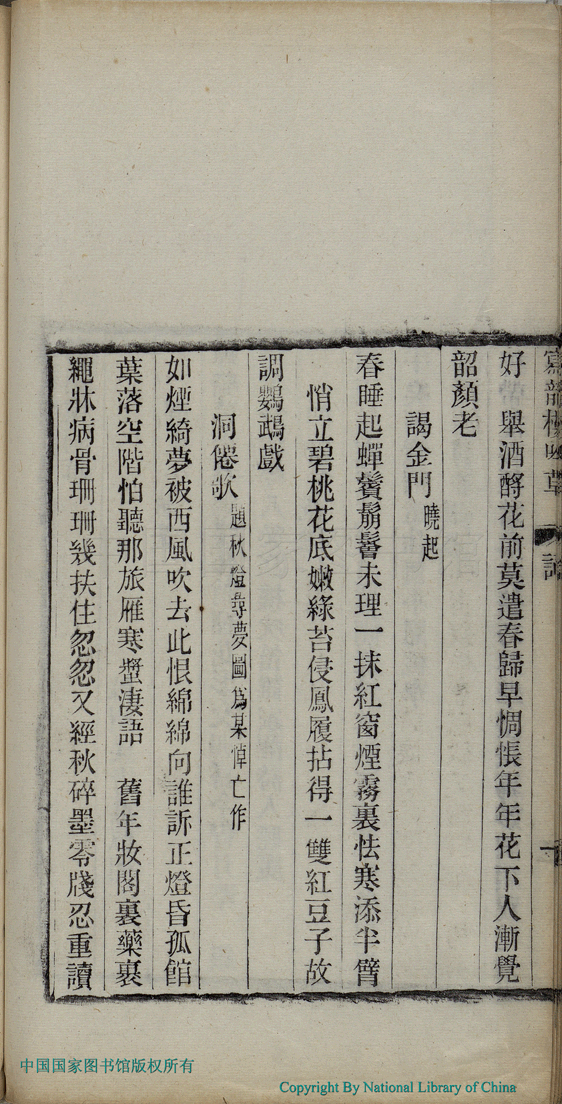 好　舉酒酹花前莫遣春歸早惆悵年年花下人漸覺
韶顏老
謁金門 曉起
春睡起蟬鬢鬅鬙未理一抹紅窗煙霧裏怯寒添半臂
悄立碧桃花底嫩綠苔侵鳳履拈得一雙紅豆子故
調鸚鵡戲
洞僊歌 題秋燈尋夢圖爲某悼亡作
如煙綺夢被西風吹去此恨綿綿向誰訴正燈昏孤館
葉落空階怕聽那旅雁寒螿淒語　舊年妝閣裏藥裹
繩牀病骨珊珊幾扶住忽忽又經秋碎墨零牋忍重讀
中国国家图书馆版权所有
Copyright By National Library of China